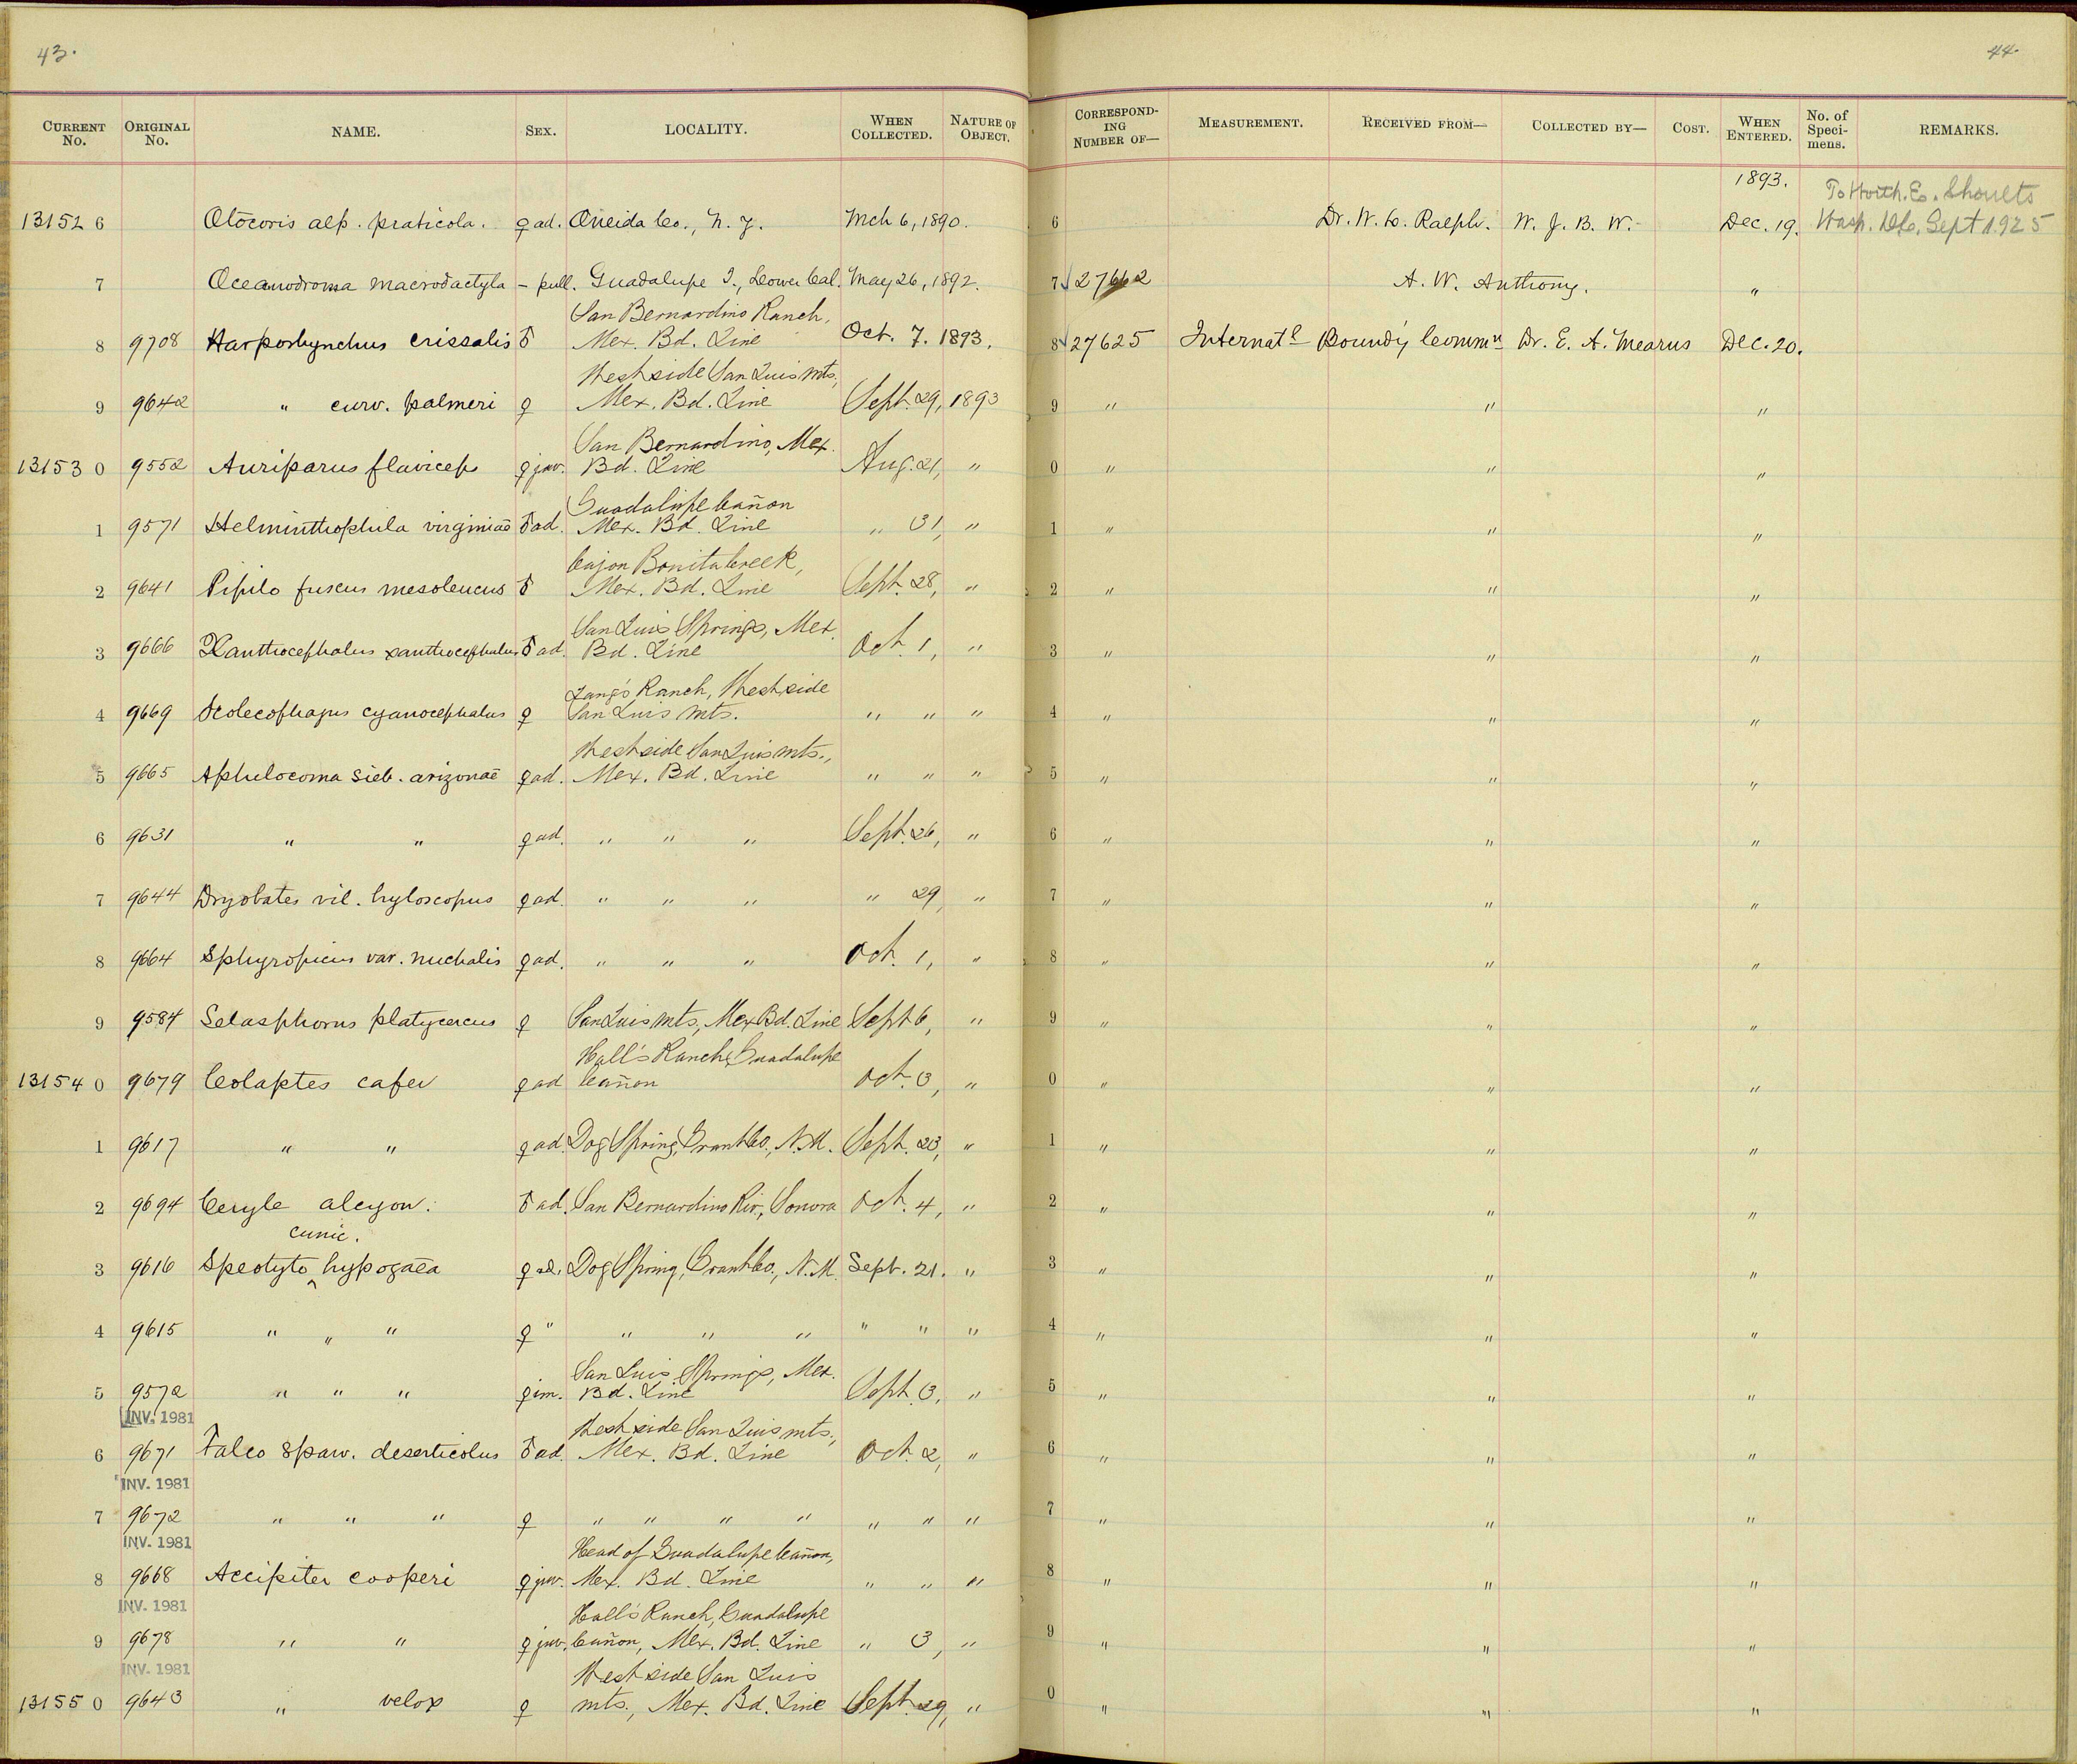 43.
44.
CURRENT No. ORIGINAL No. NAME. SEX. LOCALITY. WHEN COLLECTED. NATURE OF OBJECT. CORRESPONDING NUMBER OF— MEASUREMENT. RECEIVED FROM— COLLECTED BY— COST. WHEN ENTERED. No. of Specimens. REMARKS.
1893. To Worth. E. Shoults
13152 6 Otocoris alp. praticola. ♀ ad. Oneida Co., N. Y. Mch 6, 1890. 6 Dr. W. L. Ralph. W. J. B. W. Dec. 19. Wash. D.C. Sept 1925
7 Oceanodroma macrodactyla – pull. Guadalupe I., Lower Cal. May 26, 1892. 7 √ 27662 A. W. Anthony. "
San Bernardino Ranch,
8 9708 Harporhynchus crissalis ♂ Mex. Bd. Line Oct. 7. 1893. 8 √ 27625 Internatl Boundy Commn Dr. E. A. Mearns Dec. 20.
West side San Luis mts.,
9 9642 " curv. palmeri ♀ Mex. Bd. Line Sept. 29, 1893 9 " " "
San Bernardino, Mex.
13153 0 9552 Auriparus flaviceps ♀ juv. Bd. Line Aug. 21, " 0 " " "
Guadalupe Cañon
1 9571 Helminthophila virginiae ♂ ad. Mex. Bd. Line " 31, " 1 " " "
Cajon Bonita Creek,
2 9641 Pipilo fuscus mesoleucus ♂ Mex. Bd. Line Sept. 28, " 2 " " "
San Luis Springs, Mex.
3 9666 Xanthocephalus xanthocephalus ♂ ad. Bd. Line Oct. 1, " 3 " " "
Lang's Ranch, West side
4 9669 Scolecophagus cyanocephalus ♀ San Luis mts. " " " 4 " " "
West side San Luis mts.,
5 9665 Aphelocoma sieb. arizonae ♀ ad. Mex. Bd. Line " " " 5 " " "
6 9631 " " ♀ ad. " " " Sept. 26, " 6 " " "
7 9644 Dryobates vil. hyloscopus ♀ ad. " " " " 29, " 7 " " "
8 9664 Sphyropicus var. nuchalis ♀ ad. " " " Oct. 1, " 8 " " "
9 9584 Selasphorus platycercus ♀ San Luis mts., Mex Bd. Line Sept 6, " 9 " " "
Hall's Ranch, Guadalupe
13154 0 9679 Colaptes cafer ♀ ad Cañon Oct. 3, " 0 " " "
1 9617 " " ♀ ad. Dog Spring, Grant Co., N. M. Sept. 23, " 1 " " "
2 9694 Ceryle alcyon. ♂ ad. San Bernardino Riv., Sonora Oct. 4, " 2 " " "
cunic.
3 9616 Speotyto ^ hypogaea ♀ ad. Dog Spring, Grant Co., N. M. Sept. 21. " 3 " " "
4 9615 " " " ♀ " " " " " " " 4 " " "
San Luis Springs, Mex.
5 9572 " " " ♀ im. Bd. Line Sept. 3, " 5 " " "
INV. 1981 West side San Luis mts.,
6 9671 Falco sparv. deserticolus ♂ ad. Mex. Bd. Line Oct. 2, " 6 " " "
INV. 1981
7 9672 " " " ♀ " " " " " " " 7 " " "
INV. 1981 Head of Guadalupe Cañon,
8 9668 Accipiter cooperi ♀ juv. Mex. Bd. Line " " " 8 " " "
INV. 1981 Hall's Ranch, Guadalupe
9 9678 " " ♀ juv. Cañon, Mex. Bd. Line " 3, " 9 " " "
INV. 1981 West side San Luis
13155 0 9643 " velox ♀ mts., Mex. Bd. Line Sept. 29, " 0 " " "